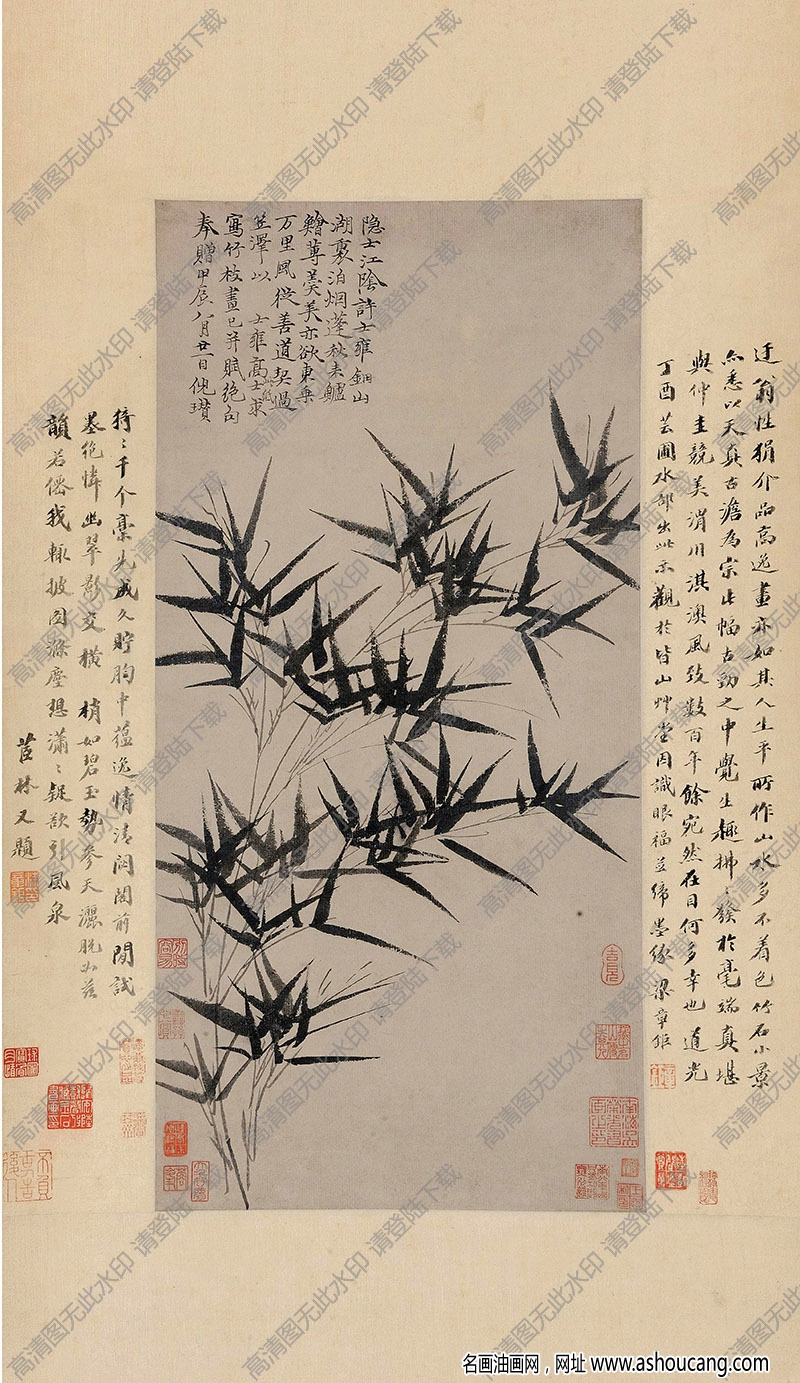 隐士江陰許士雍釦山
湖裏泊烟蓬秋来鱸
鱠蓴羹美亦欲東乗
万里風從善道契過
笠澤以士雍髙士求
寫竹枝畫已并賦絶句
奉贈甲辰八月廿一日倪瓚
迂翁性狷介品高逸畫亦如其人生平所作山水多不着色竹石小景
亦悉以天真古澹為宗此幅古勁之中覺生趣拂〻發於毫端真堪
與仲圭競美渭川淇澳風致數百年餘宛然在目何多幸也道光
丁酉芸圃水部出此示觀於皆山艸堂因識眼福並締墨緣梁章鉅
猗〻千个稾先成久貯胸中蘊逸情清閟閣前閒試
墨絶憐幽翠影交横梢如碧玉勢參天灑脱如茲
韻若僊我輒披圖滌塵想瀟〻疑欲引風泉
茝林又題
高清图无此水印 请登陆下载
名画油画网，网址 www.ashoucang.com